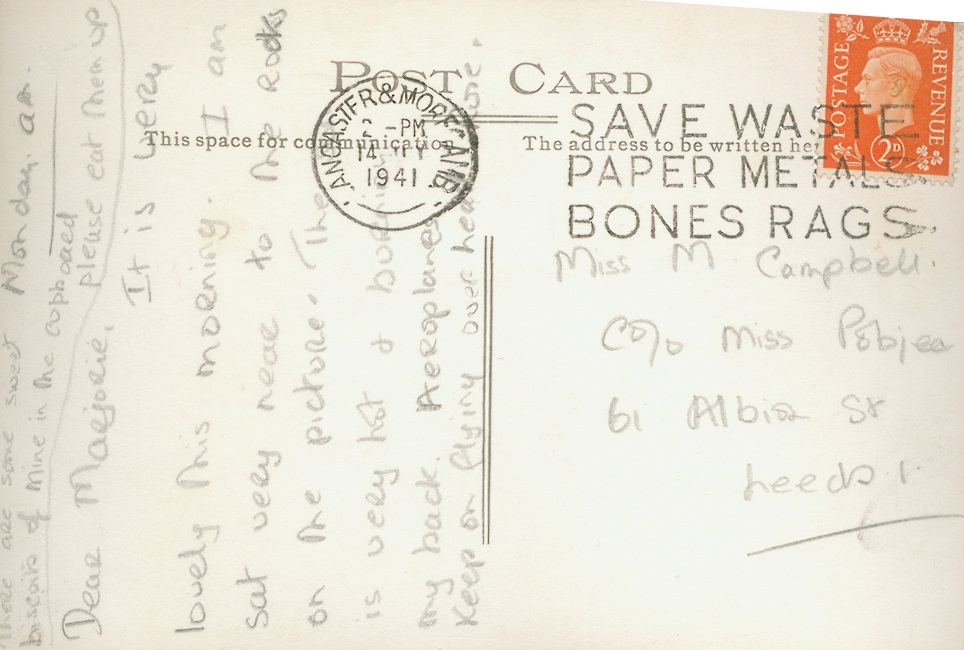 POST CARD
This space for communication
The address to be written her
LANCASTER & MORECAMBE
2 - PM
14 JY
1941
SAVE WASTE
PAPER METALS
BONES RAGS.
POSTAGE REVENUE
2D
Monday. am.
there are some sweet
biscuits of mine in the cupboard
please eat them up
Dear Marjorie,
It is very
lovely this morning. I am
sat very near to the rocks
on the picture. The
is very hot & burning
my back. Aeroplanes
keep on flying over head
Miss M Campbell.
C/o Miss Pobjee
61 Albion St
Leeds 1